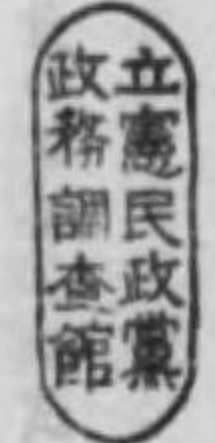 立憲民政黨
政務調查館